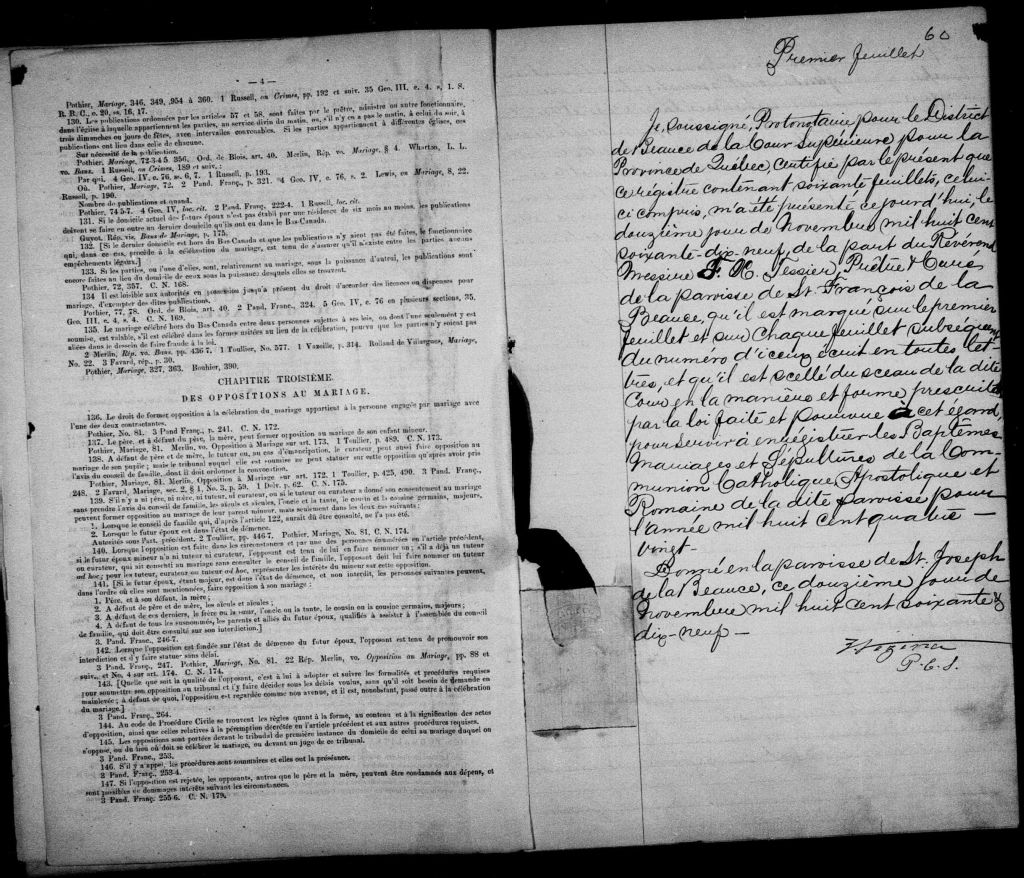 — 4 —
Pothier, Mariage, 346, 349, 954 à 360. 1 Russell, on Crimes, pp. 192 et suiv. 35 Geo. III, c. 4, s, L. S.
R. B. C., c. 20, ss. 16, 17.
130. Les publications ordonnées par les articles 57 et 58, sont faites par le prêtre, ministre ou autre fonctionnaire,
dans l'église à laquelle appartiennent les parties, au service divin du matin, ou, s'il n'y en a pas le matin, à celui du soir, à
trois dimanches ou jours de fêtes, avec intervalles convenables. Si les parties appartiennent à différentes églises, ces
publications ont lieu dans celle de chacune.
Sur nécessité de la publication.
Pothier, Mariage, 72-3-4-5. 356, Ord. de Blois, art. 40. Merlin, Rép. vo. Mariage, § 4. Wharton, L. L.
vo. Bans. 1 Russell, on Crimes, 189 et suiv. :
Par qui. 4 Geo. IV, c. 76, ss. 6, 7. 1 Russell, p. 193.
Où. Pothier, Mariage, 72. 2 Pand. Franç., p. 321. 4 Geo. IV, c. 76, s. 2. Lewis, on Mariage, 8, 22.
Russell, p. 190.
Nombre de publications et quand.
Pothier, 74-5-7. 4 Geo. IV, loc. cit. 2 Pand. Franç. 222-4. 1 Russell, loc. cit.
131. Si le domicile actuel des futurs époux n'est pas établi par une résidence de six mois au moins, les publications
doivent se faire en outre au dernier domicile qu'ils ont eu dans le Bas-Canada.
Guyot. Rép. vis. Bans de Mariage, p. 175.
132. [Si le dernier domicile est hors du Bas-Canada et que les publications n'y aient pas été faites, le fonctionnaire
qui, dans ce cas, procède à la célébration du mariage, est tenu de s'assurer qu'il n'existe entre les parties aucuns
empêchements légaux.]
133. Si les parties, ou l'une d'elles, sont, relativement au mariage, sous la puissance d'autrui, les publications sont
encore faites au lieu du domicile de ceux sous la puissance desquels elles se trouvent.
Pothier, 72, 357. C. N. 168.
134 Il est loisible aux autorités en possession jusqu'à présent du droit d'accorder des licences ou dispenses pour
mariage, d'exempter des dites publications.
Pothier, 77, 78. Ord. de Blois, art. 40. 2 Pand. Franc., 324. 5 Geo. IV, c. 76 en plusieurs sections, 35,
Geo. III, c. 4, s. 4. C. N. 169.
135. Le mariage célébré hors du Bas-Canada entre deux personnes sujettes à ses lois, ou dont l'une seulement y est
soumise, est valable, s'il est célébré dans les formes usitées au lieu de la célébration, pourvu que les parties n'y soient pas
allées dans le dessein de faire fraude à la loi.
2 Merlin, Rép. vo. Bans, pp. 436-7. 1 Toullier, No. 577. 1 Vazeille, p. 314. Rolland de Villargues, Mariage,
No. 22. 3 Favard, rép., p. 30.
Pothier, Mariage, 327, 363. Bouhier, 390.
CHAPITRE TROISIÈME.
DES OPPOSITIONS AU MARIAGE.
136. Le droit de former opposition à la célébration du mariage appartient à la personne engagée par mariage avec
l'une des deux contractantes.
Pothier, No. 81. 3 Pand Franç., p. 241. C. N. 172.
137. Le père, et à défaut du père, la mère, peut former opposition au mariage de son enfant mineur.
Pothier, Mariage, 81. Merlin, vo. Opposition à Mariage sur art. 173. 1 Toullier, p. 489. C. N. 173.
138. A défaut de père et de mère, le tuteur ou, au cas d'émancipation, le curateur, peut aussi former opposition
au mariage de son pupile ; mais le tribunal auquel elle est soumise ne peut statuer sur cette opposition qu'après avoir pris
l'avis du conseil de famille, dont il doit ordonner la convocation.
Pothier, Mariage, 81. Merlin, Opposition à Mariage sur art. 172. 1 Toullier, p. 425, 490. 3 Pand. Franç.,
248. 2 Favard, Mariage, sec. 2, § 1, No. 3, p. 59. 1 Delv. p. 62. C. N. 175.
139. S'il n'y a ni père, ni mère, ni tuteur, ni curateur, ou si le tuteur ou curateur a donné son consentement au mariage
sans prendre l'avis du conseil de famille, les aïeuls et aïeules, l'oncle et la tante, le cousin et la cousine germains, majeurs,
peuvent former opposition au mariage de leur parent mineur, mais seulement dans les deux cas suivants :
1. Lorsque le conseil de famille qui, d'après l'article 122, aurait dû être consulté, ne l'a pas été.
2. Lorsque le futur époux est dans l'état de démence.
Autorités sous l'art. précédent. 2 Toullier, pp. 446-7. Pothier, Mariage, No. 81, C. N. 174.
140. Lorsque l'opposition est faite dans les circonstances et par une des personnes énumérées en l'article précédent,
si le futur époux mineur n'a ni tuteur ni curateur, l'opposant est tenu de lui en faire nommer un ; s'il a déjà un tuteur
ou curateur, qui ait consenti au mariage sans consulter le conseil de famille, l'opposant doit lui faire nommer un tuteur
ad hoc ; pour les tuteur, curateur ou tuteur ad hoc, représenter les intérêts du mineur sur cette opposition.
141. [Si le futur époux, étant majeur, est dans l'état de démence, et non interdit, les personnes suivantes peuvent,
dans l'ordre où elles sont mentionnées, faire opposition à son mariage :
1. Père, et à son défaut, la mère ;
2. A défaut de père et de mère, les aïeuls et aïeules ;
3. A défaut de ces derniers, le frère ou la sœur, l'oncle ou la tante, le cousin ou la cousine germains, majeurs ;
4. A défaut de tous les susnommés, les parents et alliés du futur époux, qualifiés à assister à l'assemblée du conseil
de famille, qui doit être consulté sur son interdiction.]
3 Pand. Franc., 246-7.
142. Lorsque l'opposition est fondée sur l'état de démence du futur époux, l'opposant est tenu de promouvoir son
interdiction et d'y faire statuer sans délai.
3 Pand. Franç., 247. Pothier, Mariage, No. 81. 22 Rép. Merlin, vo. Opposition au Mariage, pp. 88 et
suiv., et No. 4 sur art. 174. C. N. 174.
143. [Quelque soit la qualité de l'opposant, c'est à lui à adopter et suivre les formalités et procédures requises
pour soumettre son opposition au tribunal et l'y faire décider sous les délais voulus, sans qu'il soit besoin de demande en
mainlevée ; à défaut de quoi, l'opposition est regardée comme non avenue, et il est, nonobstant, passé outre à la célébration
du mariage.]
3 Pand. Franç., 264.
144. Au code de Procédure Civile se trouvent les règles quant à la forme, au contenu et à la signification des actes
d'opposition, ainsi que celles relatives à la péremption décrétée en l'article précédent et aux autres procédures requises.
145. Les oppositions sont portées devant le tribunal de première instance du domicile de celui au mariage duquel on
s'oppose, ou du lieu où doit se célébrer le mariage, ou devant un juge de ce tribunal.
3 Pand. Franc., 253.
146. S'il y a appel, les procédures sont sommaires et elles ont la préséance.
2 Pand. Franç., 253-4.
147. Si l'opposition est rejetée, les opposants, autres que le père et la mère, peuvent être condamnés aux dépens, et
sont passibles de dommages intérêts suivant les circonstances.
3 Pand. Franç. 255-6. C. N. 179.
60
Premier feuillet
Je, soussigné, Protonotaire pour le District
de Beauce de la Cour Supérieure pour la
Province de Québec, certifie par le présent que
ce registre contenant soixante feuillets, celui-
ci compris, m'a été présenté ce jourd'hui, le
douzième jour de Novembre mil huit cent
soixante-dix-neuf, de la part du Révérend
Messire F. X. Tessier, Prêtre & Curé
de la paroisse de St. François de la
Beauce, qu'il est marqué sur le premier
feuillet et sur chaque feuillet subséquent
du numéro d'iceux écrit en toutes let-
tres, et qu'il est scellé du sceau de la dite
Cour en la manière et forme prescrite
par la loi faite et pourvue à cet égard
pour servir à enregistrer les Baptêmes
Mariages et Sépultures de la Com-
munion Catholique, Apostolique et
Romaine de la dite paroisse pour
l'année mil huit cent quatre-
vingt —
Donné en la paroisse de St. Joseph
de la Beauce, ce douzième jour de
Novembre mil huit cent soixante &
dix-neuf —
Vézina
P.C.S.